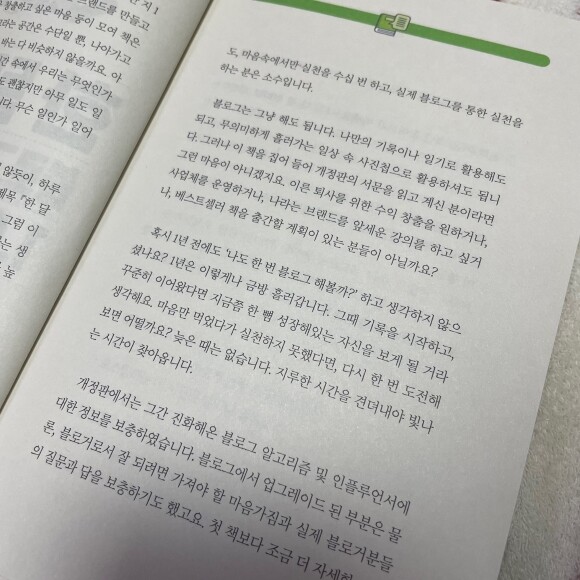 브랜드를 만들고
창출하고 싶은 마음 등이 모여 책은
라는 공간은 수단일 뿐, 나아가고
바는 다 비슷하지 않을까요. 아
간 속에서 우리는 무엇인가
도 괜찮지만 아무 일도 일
니다. 무슨 일인가 일어
않듯이, 하루
제목 『한 달
. 그럼 이
는 생
를 높
도, 마음속에서만 실천을 수십 번 하고, 실제 블로그를 통한 실천을
하는 분은 소수입니다.
블로그는 그냥 해도 됩니다. 나만의 기록이나 일기로 활용해도
되고, 무의미하게 흘러가는 일상 속 사진첩으로 활용하셔도 됩니
다. 그러나 이 책을 집어 들어 개정판의 서문을 읽고 계신 분이라면
그런 마음이 아니겠지요. 이른 퇴사를 위한 수익 창출을 원하거나,
사업체를 운영하거나, 나라는 브랜드를 앞세운 강의를 하고 싶거
나, 베스트셀러 책을 출간할 계획이 있는 분들이 아닐까요?
혹시 1년 전에도 ‘나도 한 번 블로그 해볼까?’ 하고 생각하지 않으
셨나요? 1년은 이렇게나 금방 흘러갑니다. 그때 기록을 시작하고,
꾸준히 이어왔다면 지금쯤 한 뼘 성장해있는 자신을 보게 될 거라
생각해요. 마음만 먹었다가 실천하지 못했다면, 다시 한 번 도전해
보면 어떨까요? 늦은 때는 없습니다. 지루한 시간을 견뎌내야 빛나
는 시간이 찾아옵니다.
개정판에서는 그간 진화해온 블로그 알고리즘 및 인플루언서에
대한 정보를 보충하였습니다. 블로그에서 업그레이드 된 부분은 물
론, 블로거로서 잘 되려면 가져야 할 마음가짐과 실제 블로거분들
의 질문과 답을 보충하기도 했고요. 첫 책보다 조금 더 자세한